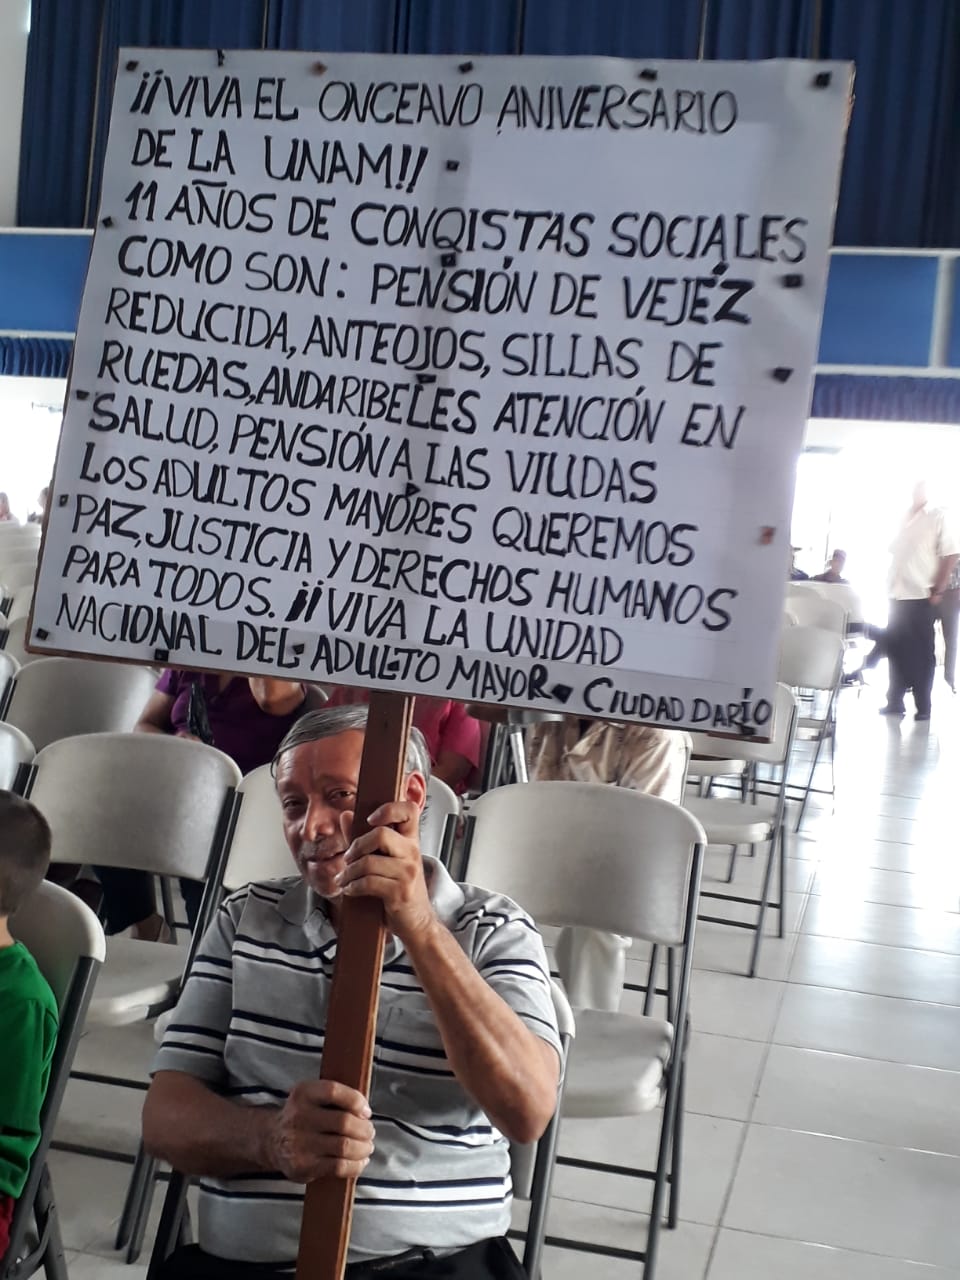 ¡¡VIVA EL ONCEAVO ANIVERSARIO
DE LA UNAM!!
11 AÑOS DE CONQISTAS SOCIALES
COMO SON: PENSIÓN DE VEJÉZ
REDUCIDA, ANTEOJOS, SILLAS DE
RUEDAS, ANDARIBELES ATENCIÓN EN
SALUD, PENSIÓN A LAS VIUDAS
LOS ADULTOS MAYORES QUEREMOS
PAZ, JUSTICIA Y DERECHOS HUMANOS
PARA TODOS. ¡¡VIVA LA UNIDAD
NACIONAL DEL ADULTO MAYOR. CIUDAD DARÍO